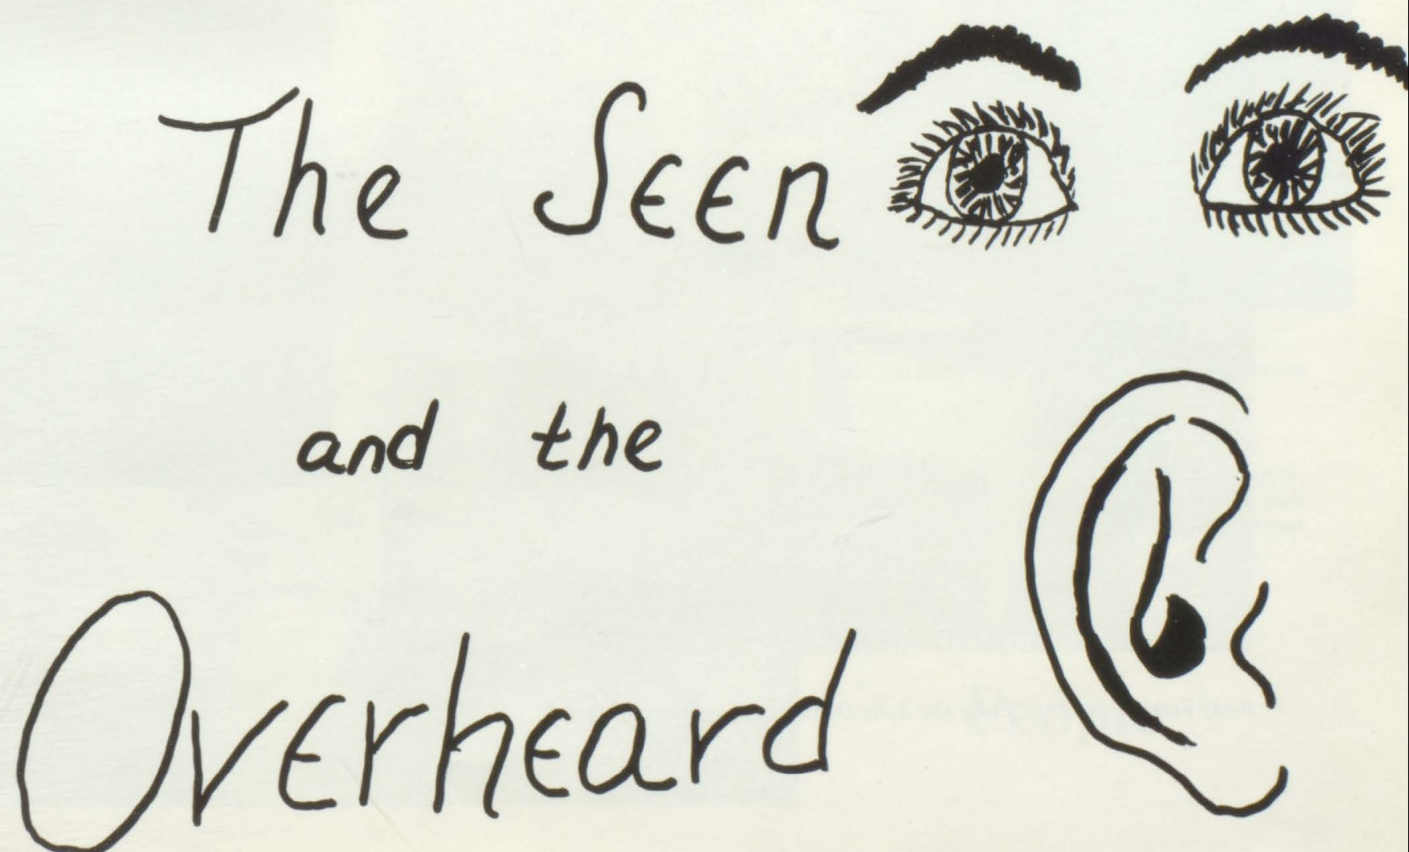 The Seen
and the
Overheard